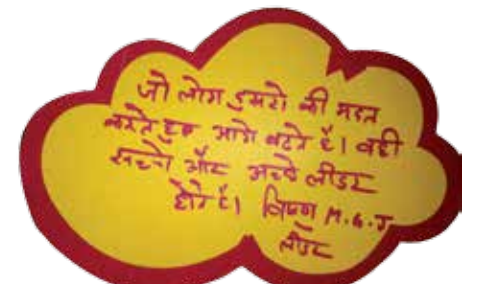 जो लोग दुसरो की मदत
करते हुए आगे बढते है। वही
सच्चे और अच्छे लीडर
होते है। M.G.J
लीडर